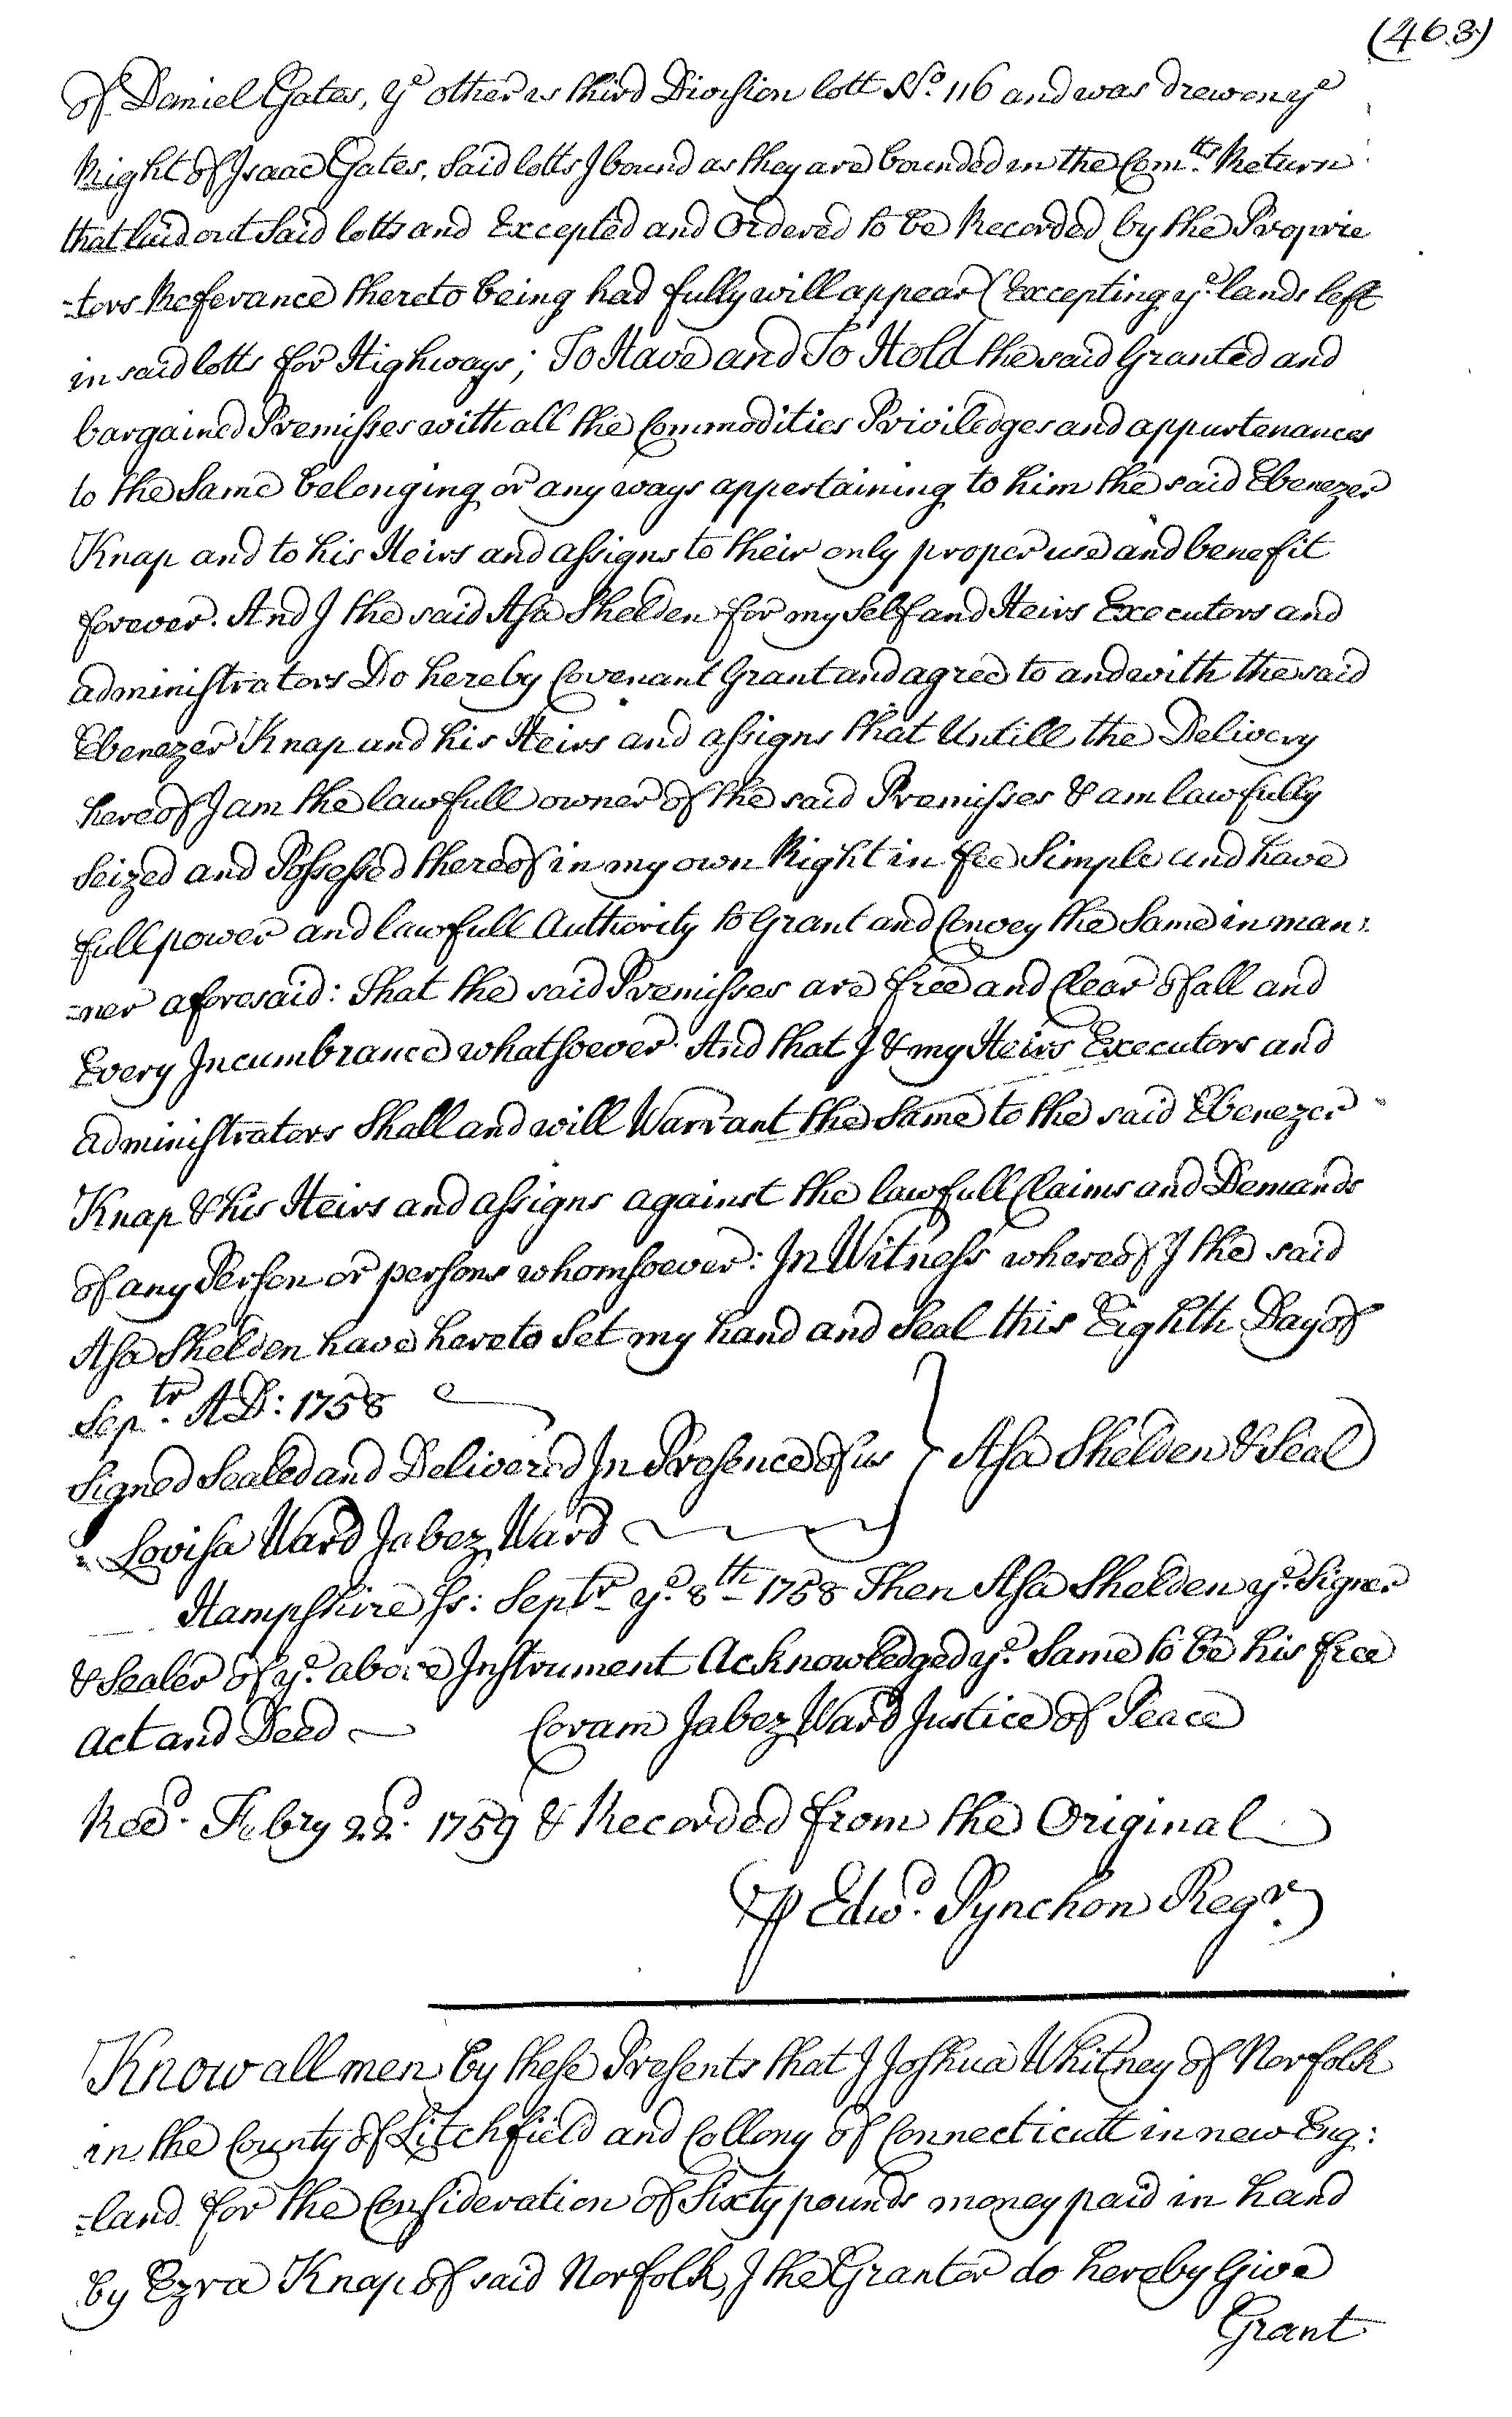 (463)
of Daniel Gates, ye other is third Division lott No. 116 and was drew on ye
Right of Isaac Gates, Said lotts I bound as they are bounded in the Comtts Return
that laid out Said lotts and Excepted and Ordered to be Recorded by the Proprie
-tors Referance thereto being had fully will appear (Excepting ye lands left
in said lotts for Highways; To Have and To Hold the said Granted and
bargained Premisses with all the Commodities Priviledges and appurtenances
to the Same belonging or any ways appertaining to him the said Ebenezer
Knap and to his Heirs and assigns to their only proper use and benefit
forever. And I the said Asa Shelden for my Self and Heirs Executors and
administrators Do hereby Covenant Grant and agree to and with the said
Ebenezer Knap and his Heirs and assigns that Untill the Delivery
hereof I am the lawfull owner of the said Premisses & am lawfully
Seized and Possessed thereof in my own Right in fee Simple and have
full power and lawfull Authority to Grant and Convey the Same in man:
-ner aforesaid: That the said Premisses are free and Clear of all and
Every Incumbrance whatsoever. And that I & my Heirs Executors and
administrators Shall and will Warrant the Same to the said Ebenezer
Knap & his Heirs and assigns against the lawfull Claims and Demands
of any Person or persons whomsoever: In Witness whereof I the said
Asa Shelden have hereto Set my hand and Seal this Eighth Day of
Septr. AD: 1758
Signed Sealed and Delivered In Presence of us } Asa Shelden & Seal
Lovisa Ward Jabez Ward
Hampshire ss: Septr ye 8th 1758 Then Asa Shelden ye Signer
& Sealer of ye above Instrument Acknowledged ye Same to be his free
Act and Deed Coram Jabez Ward Justice of Peace
Recd. Febry 22d. 1759 & Recorded from the Original
P Edwd. Pynchon Regr.
Know all men by these Presents that I Joshua Whitney of Norfolk
in the County of Litchfield and Collony of Connecticutt in new Eng:
-land for the Consideration of Sixty pounds money paid in hand
by Ezra Knap of said Norfolk, I the Grantor do hereby Give
Grant